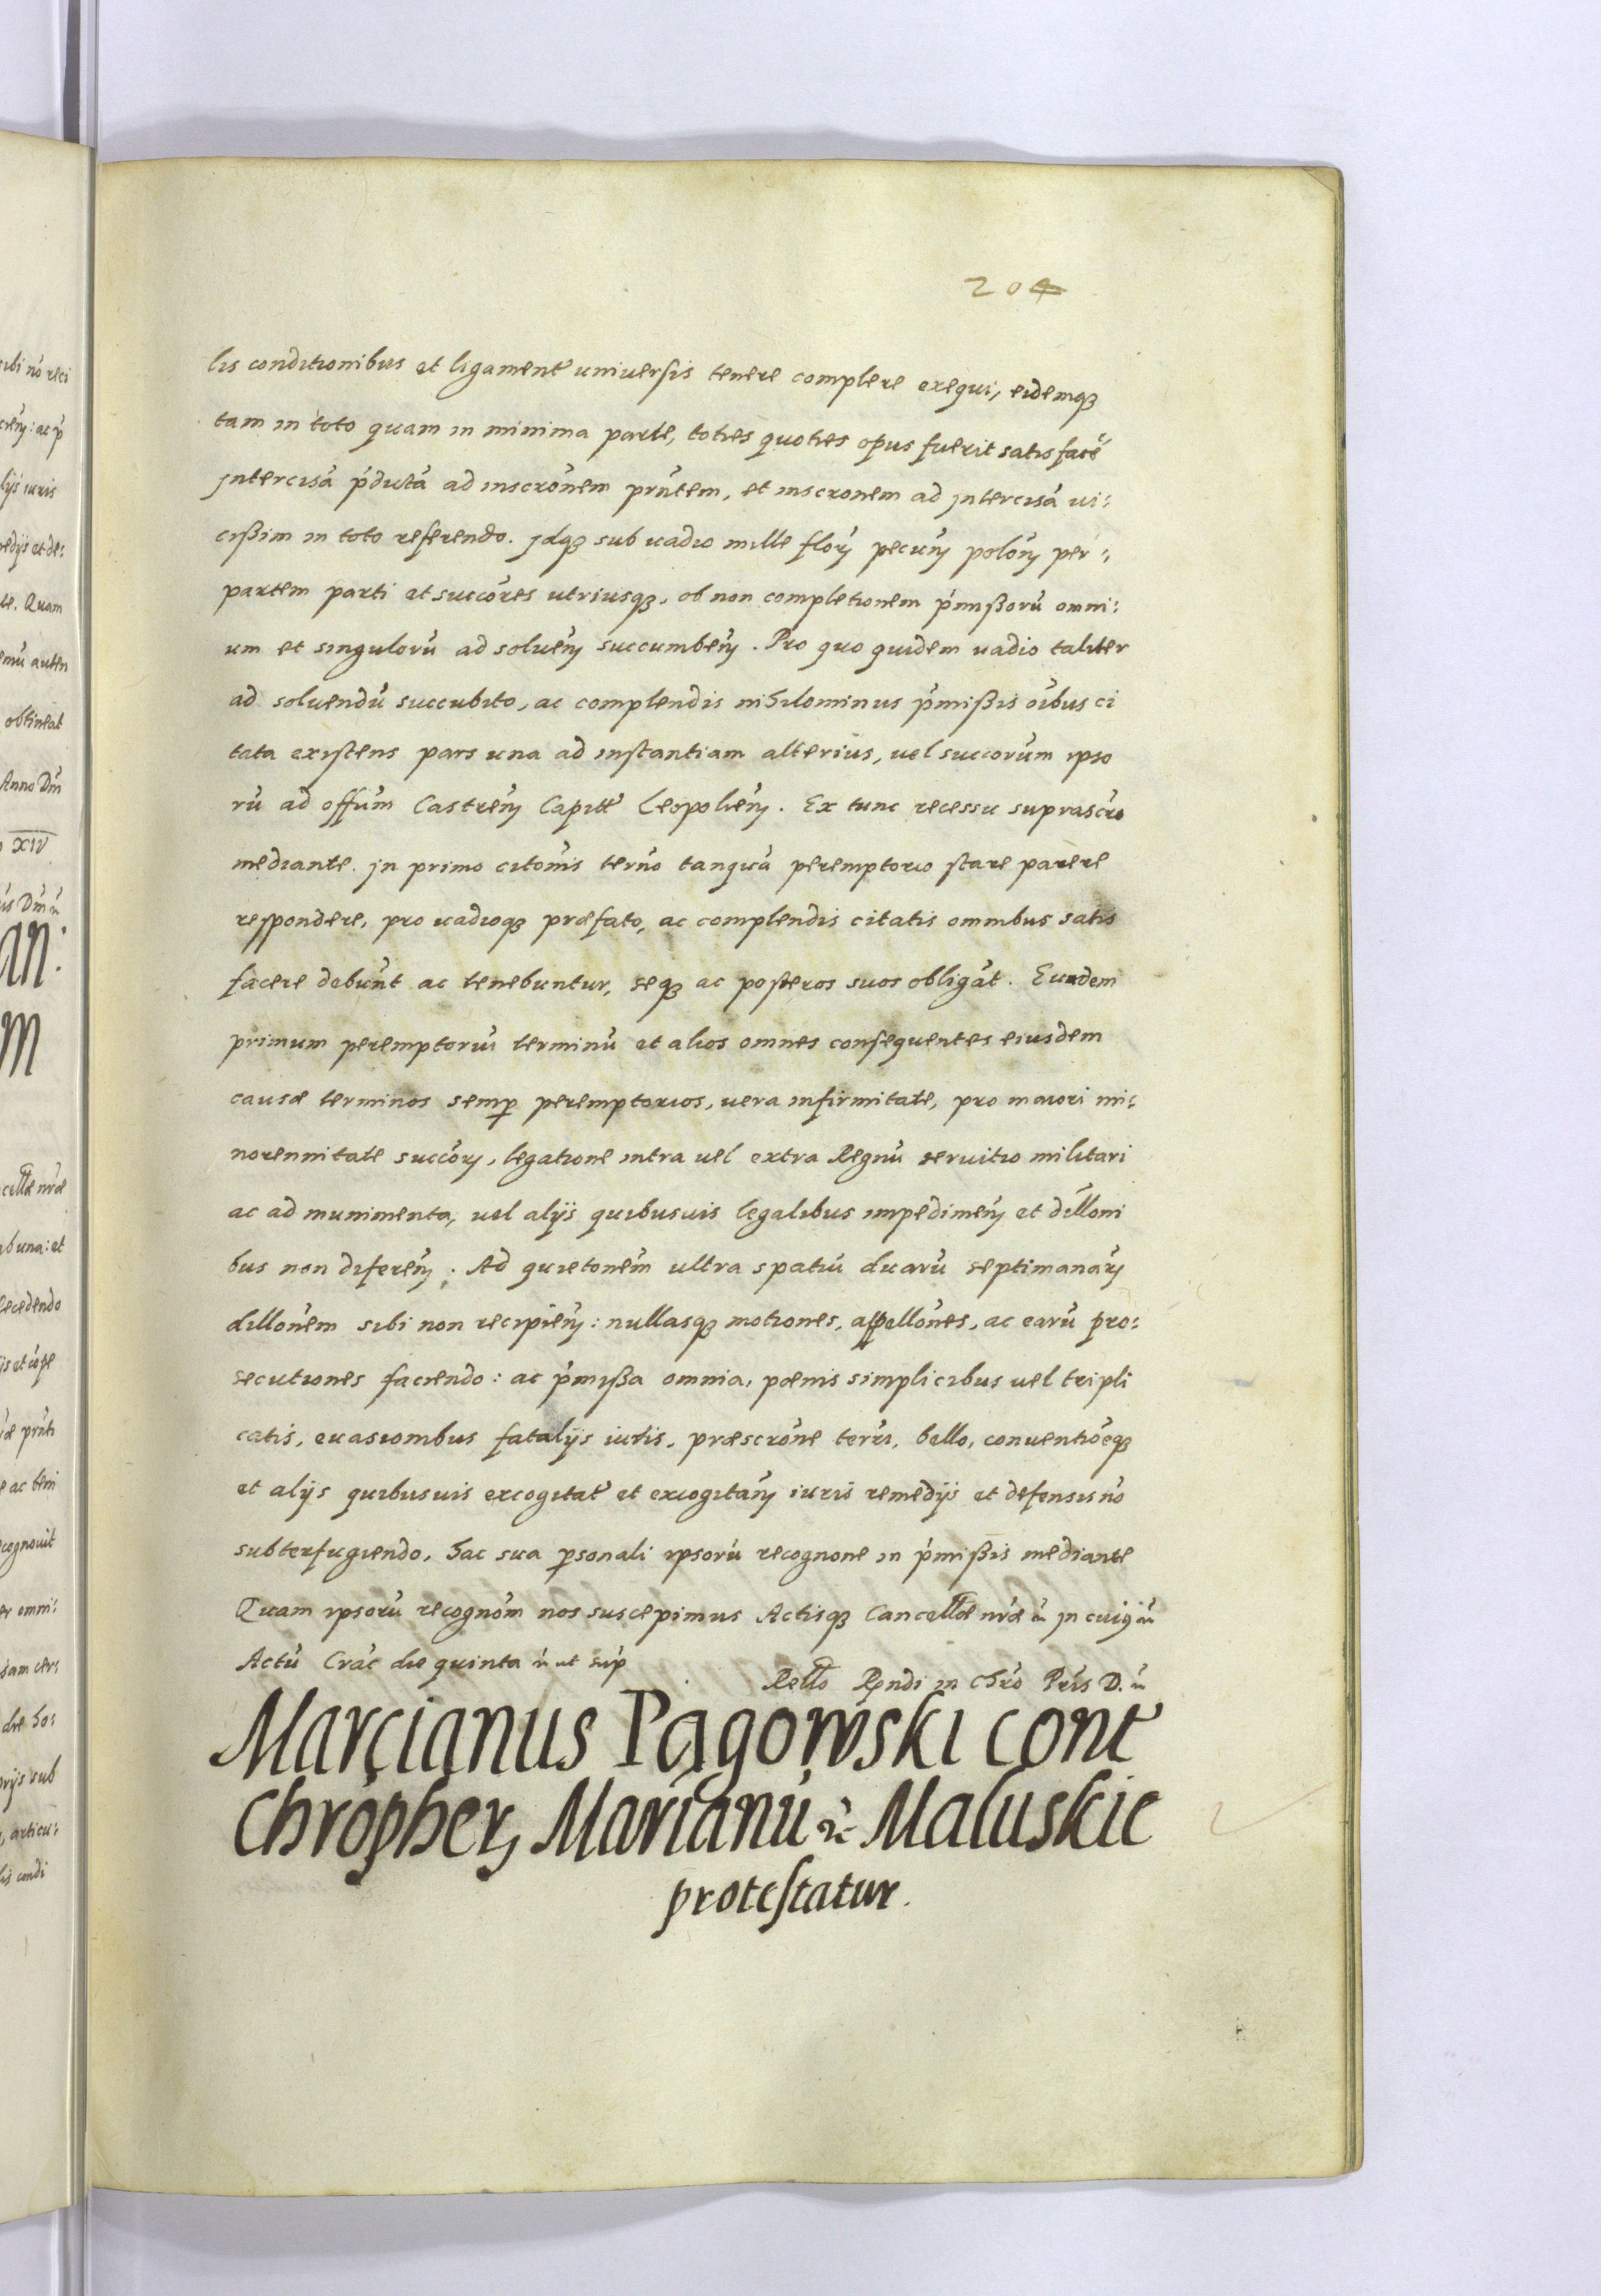 204
lis conditionibus et ligament universis tenere complere exequi, eidemq3
tam in toto quam in minima parte, toties quoties opus fuerit satisfacē
jntercisā p̄dictā ad inscrōnem prn̄tem, et inscronem ad jntercisā vi:
cißim in toto referendo. jdq3 sub vadio mille flor̄ pecun̄ polon̄ per:
partem parti et succōres utriusq3, ob non completionem p̄mißorū omni:
um et singulorū ad solven̄ succumben̄. Pro quo quidem vadio taliter
ad solvendū succubito, ac complendis nihilominus p̄mißis oībus ci
tata existens pars una ad instantiam alterius, vel succorūm ipso
rū ad offūm Castren̄ Capitt Leopolien̄. Ex tunc recessu suprascrō
mediante. jn primo citōnis termo tanquā peremptorio stare parere
respondere, pro vadioq3 præfato, ac complendis citatis omnibus satis
facere debūnt ac tenebuntur, seq3 ac posteros suos obligāt. Eundem
primum peremptoriū terminū et alios omnes consequentes eiusdem
causæ terminos semp peremptorios, vera infirmitate, pro maiori mi:
norennitate succōr, legatione intra vel extra Regnū servitio militari
ac ad munimenta, vel alijs quibusvis legalibus impedimen̄ et dīlloni
bus non diferen̄. Ad quietonēm ultra spatiū duarū septimanar̄
dillonēm sibi non recipien̄: nullasq3 motiones, appellōnes, ac earū pro:
secutiones faciendo: ac p̄mißa omnia, pœnis simplicibus vel tripli
catis, evasionibus fatalijs iuris, præscrōne terr̄i, bello, conventiōeq3
et alijs quibusvis excogitat et excogitan̄ iuris remedijs et defensis nō
subterfugiendo, hac sua psonali ipsorū recognone in p̄mißis mediante
Quam ipsorū recognōm nos suscepimus Actisq3 Cancellæ nr̄æ &c jn cuiq &c
Actū Crac̄ die quinta &c ut sup̄
Rello Rṇdi in Chrō Pris D. &c
Marcianus Pagowski cont
Chropher, Marianū &c Maluskie
protestatur.